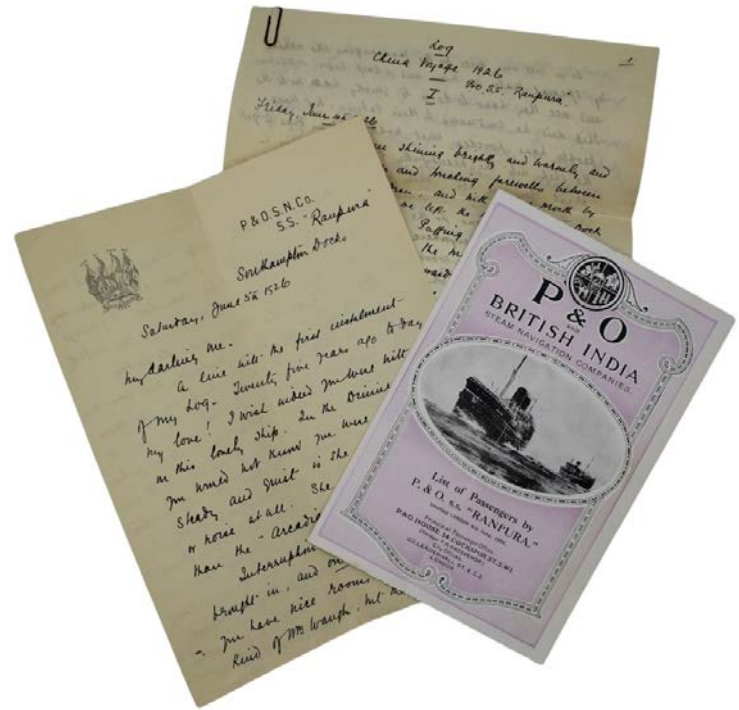 Log
1
China Voyage 1926
P&O. S.S. "Ranpura"
I
Friday, June 4th 26
shining brightly and warmly and
and breaking farewells between
and with
left the
Puffing
the
P & O. S. N. Co.
S.S. "Ranpura"
Southampton Docks
Saturday, June 5th 1926
My darling Me.
A line with the first instalment
of my Log. Twenty five years ago to day
my love! I wish indeed you were with
in this lovely ship. In the
you would not know you were
steady and quiet is she
or noise at all. She
than the "Arcadia
Interruption
brought in, and
you have nice rooms
kind of Mrs Waugh, but
P & O
AND
BRITISH INDIA
STEAM NAVIGATION COMPANIES.
List of Passengers by
P. & O. S.S. "RANPURA."
P&O HOUSE, 14 COCKSPUR ST, S.W.1.
122 LEADENHALL ST, E.C.3.
LONDON